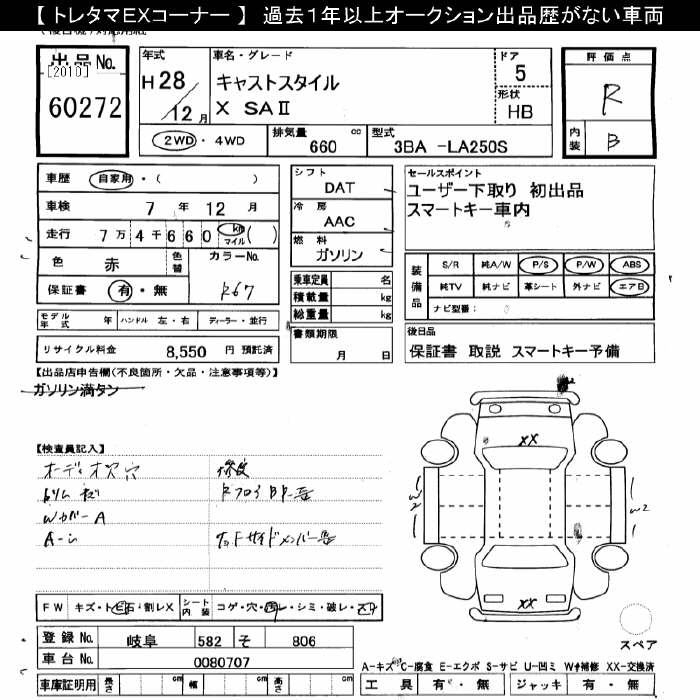 【 トレタマEXコーナー 】 過去1年以上オークション出品歴がない車両
出品No.
[2010]
60272
年式
H 28
12 月
車名・グレード
キャストスタイル
X SAⅡ
ドア
5
形状
HB
評価点
R
内装
B
2WD・4WD
排気量
660 cc
型式
3BA -LA250S
車歴
自家用・( )
車検
7 年 12 月
走行
7万4千660 km マイル ( )
色
赤
色替
カラーNo.
R67
保証書
有・無
シフト
DAT
冷房
AAC
燃料
ガソリン
乗車定員 名
積載量 kg
総重量 kg
セールスポイント
ユーザー下取り 初出品
スマートキー車内
装備品
S/R 純A/W P/S P/W ABS
純TV 純ナビ 革シート 外ナビ エアB
ナビ型番:
モデル年式 年 ハンドル 左・右 ディーラー・並行
リサイクル料金 8,550 円 預託済
書類期限
月 日
後日品
保証書 取説 スマートキー予備
【出品店申告欄(不良箇所・欠品・注意事項等)】
ガソリン満タン
【検査員記入】
オーディオ穴
修復
WカバーA
FW キズ・トビ石・割レX
シート内装 コゲ・穴・汚レ・シミ・破レ・スリ
登録No. 岐阜 582 そ 806
車台No. 0080707
車庫証明用 長さ cm 幅 cm 高さ cm
XX
W2
W2
XX
スペア
A-キズ C-腐食 E-エクボ S-サビ U-凹ミ W-補修 XX-交換済
工具 有・無 ジャッキ 有・無